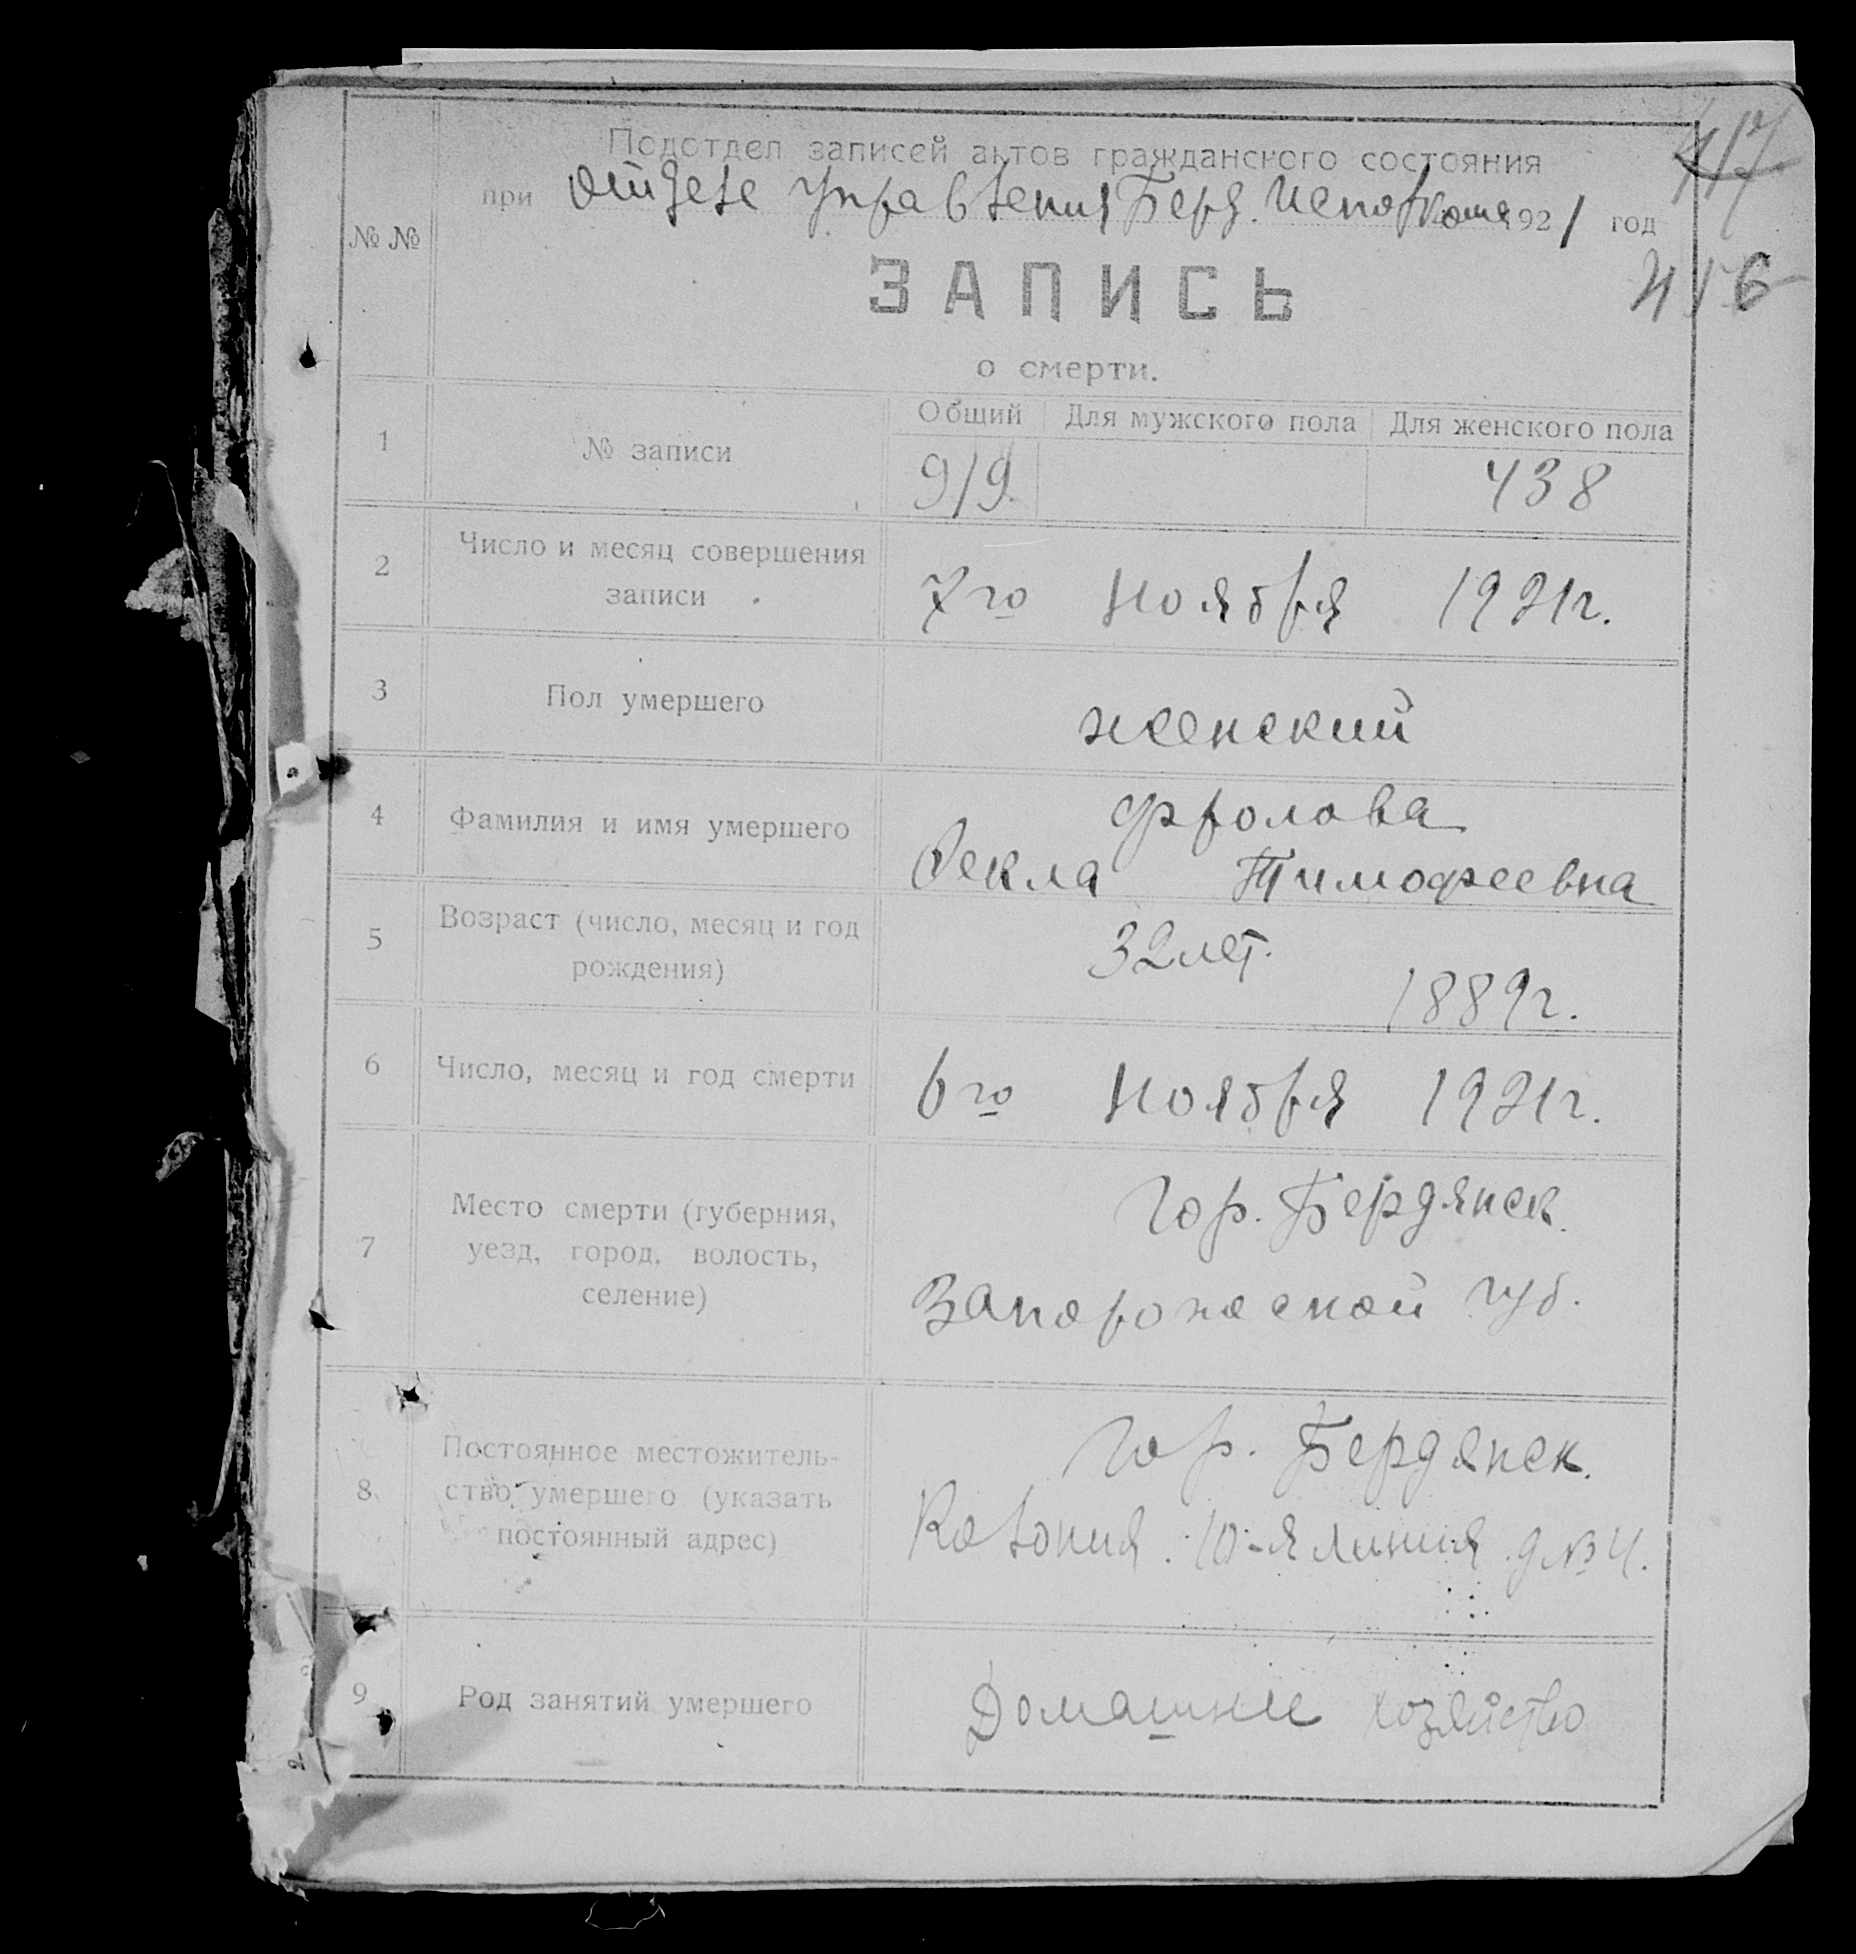 417
Подотдел записей актов гражданского состояния
при отделе Управления Берд. Исполкома 1921 год
№ №
416
ЗАПИСЬ
о смерти.
1 № записи
Общий Для мужского пола Для женского пола
919. 438
2 Число и месяц совершения записи
7го Ноября 1921г.
3 Пол умершего
женский
4 Фамилия и имя умершего
Фролова
Фекла Тимофеевна
5 Возраст (число, месяц и год
рождения)
32 лет.
1889г.
6 Число, месяц и год смерти
6го Ноября 1921г.
7 Место смерти (губерния,
уезд, город, волость,
селение)
Гор. Бердянск.
Запорожской губ.
8 Постоянное местожитель-
ство умершего (указать
постоянный адрес)
Гор. Бердянск.
Колония. 10-я линия д №4.
9 Род занятий умершего
Домашнее хозяйство